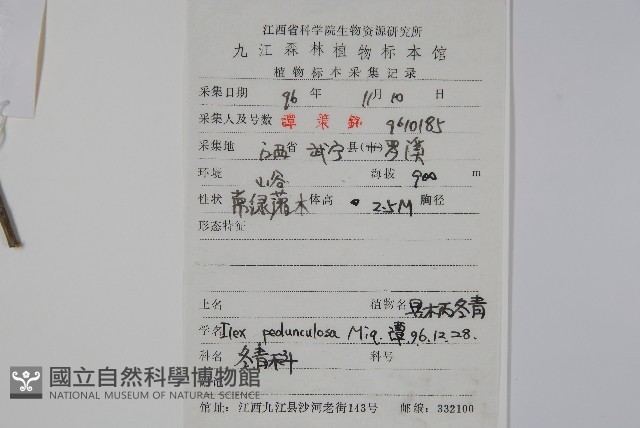 江西省科学院生物资源研究所
九江森林植物标本馆
植物标本采集记录
采集日期 96 年 11月 10 日
采集人及号数 譚策銘 9610185
采集地 江西省 武宁县(市) 罗溪
环境 山谷 海拔 900 m
性状 常绿灌木 体高 2.5M 胸径
形态特征
土名 植物名 具柄冬青
学名 Ilex pedunculosa Miq. 譚 96.12.28.
科名 冬青科 科号
國立自然科學博物館
NATIONAL MUSEUM OF NATURAL SCIENCE
馆址:江西九江县沙河老街143号 邮编:332100